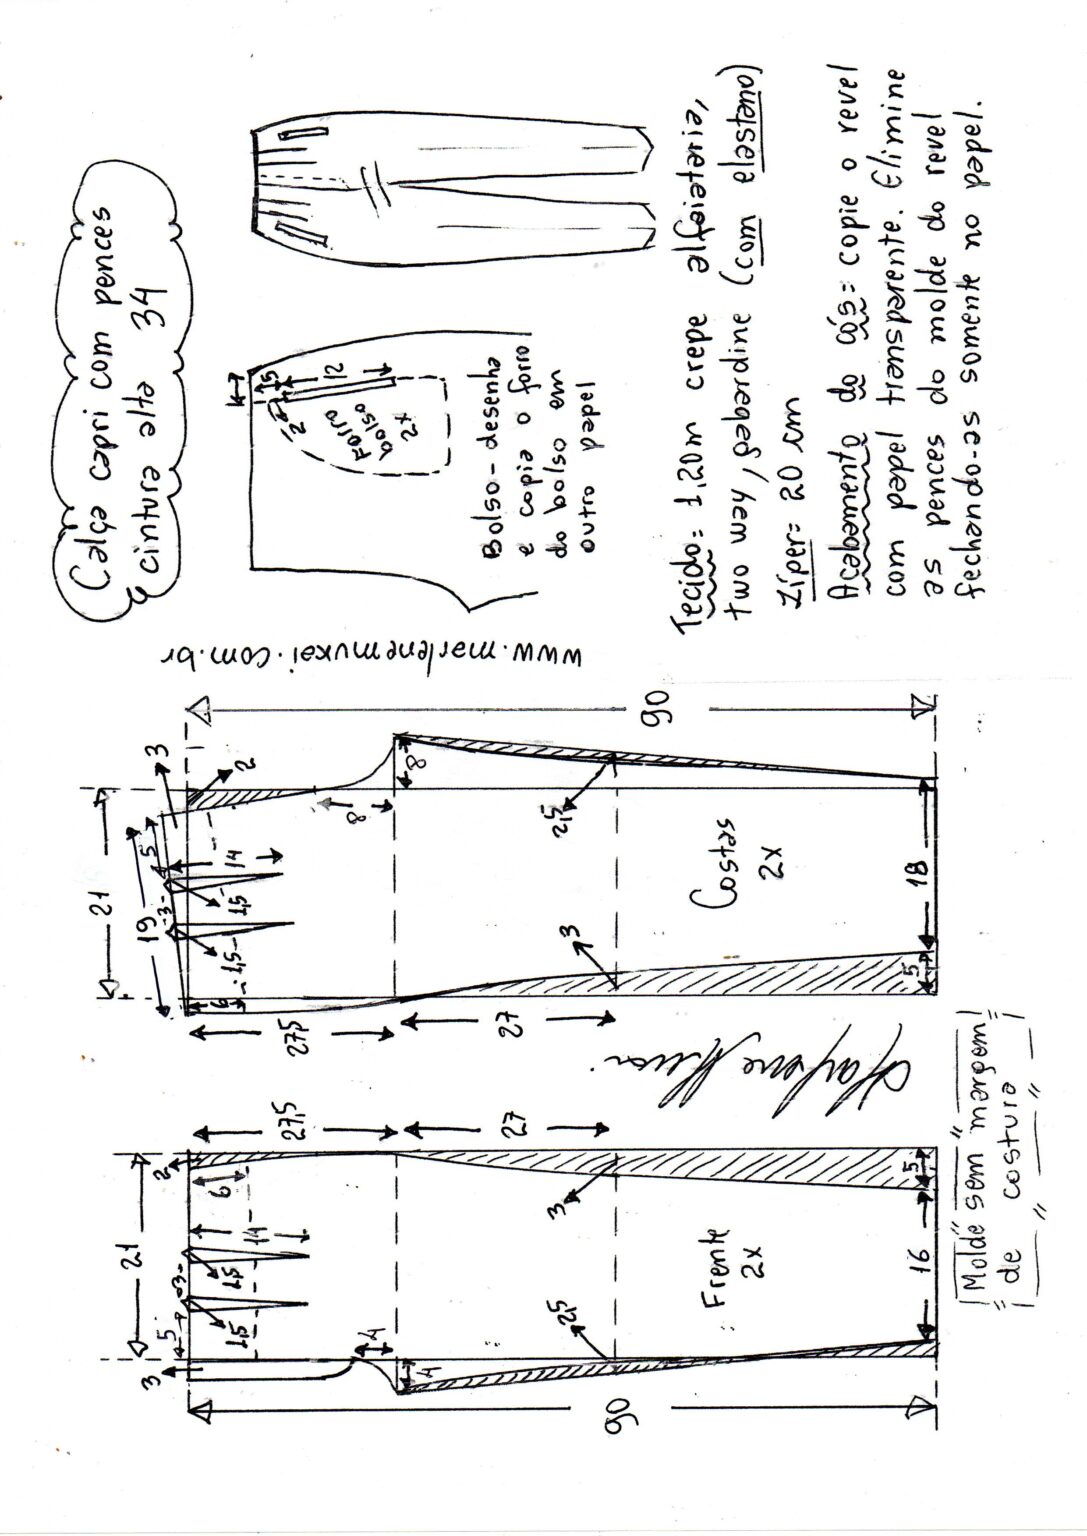 Calça capri com pences
e cintura alta 34
5
12
2
Forro
bolso
2x
Bolso - desenha
e copia o forro
do bolso em
outro papel
Tecido = 1,20m crepe alfaiataria,
two way, gabardine (com elastano)
Zíper = 20 cm
Acabamento do cós = copie o revel
com papel transparente. Elimine
as pences do molde do revel
fechando-as somente no papel.
www.marlenemukai.com.br
21
3
5
3
2
1,5
1,5
14
6
27,5
27
4
4
2,5
3
Frente
2x
16
5
90
21
19
3
2
5
3
1,5
1,5
14
6
27,5
27
8
8
2,5
3
Costas
2x
18
5
90
Molde sem margem
de costura